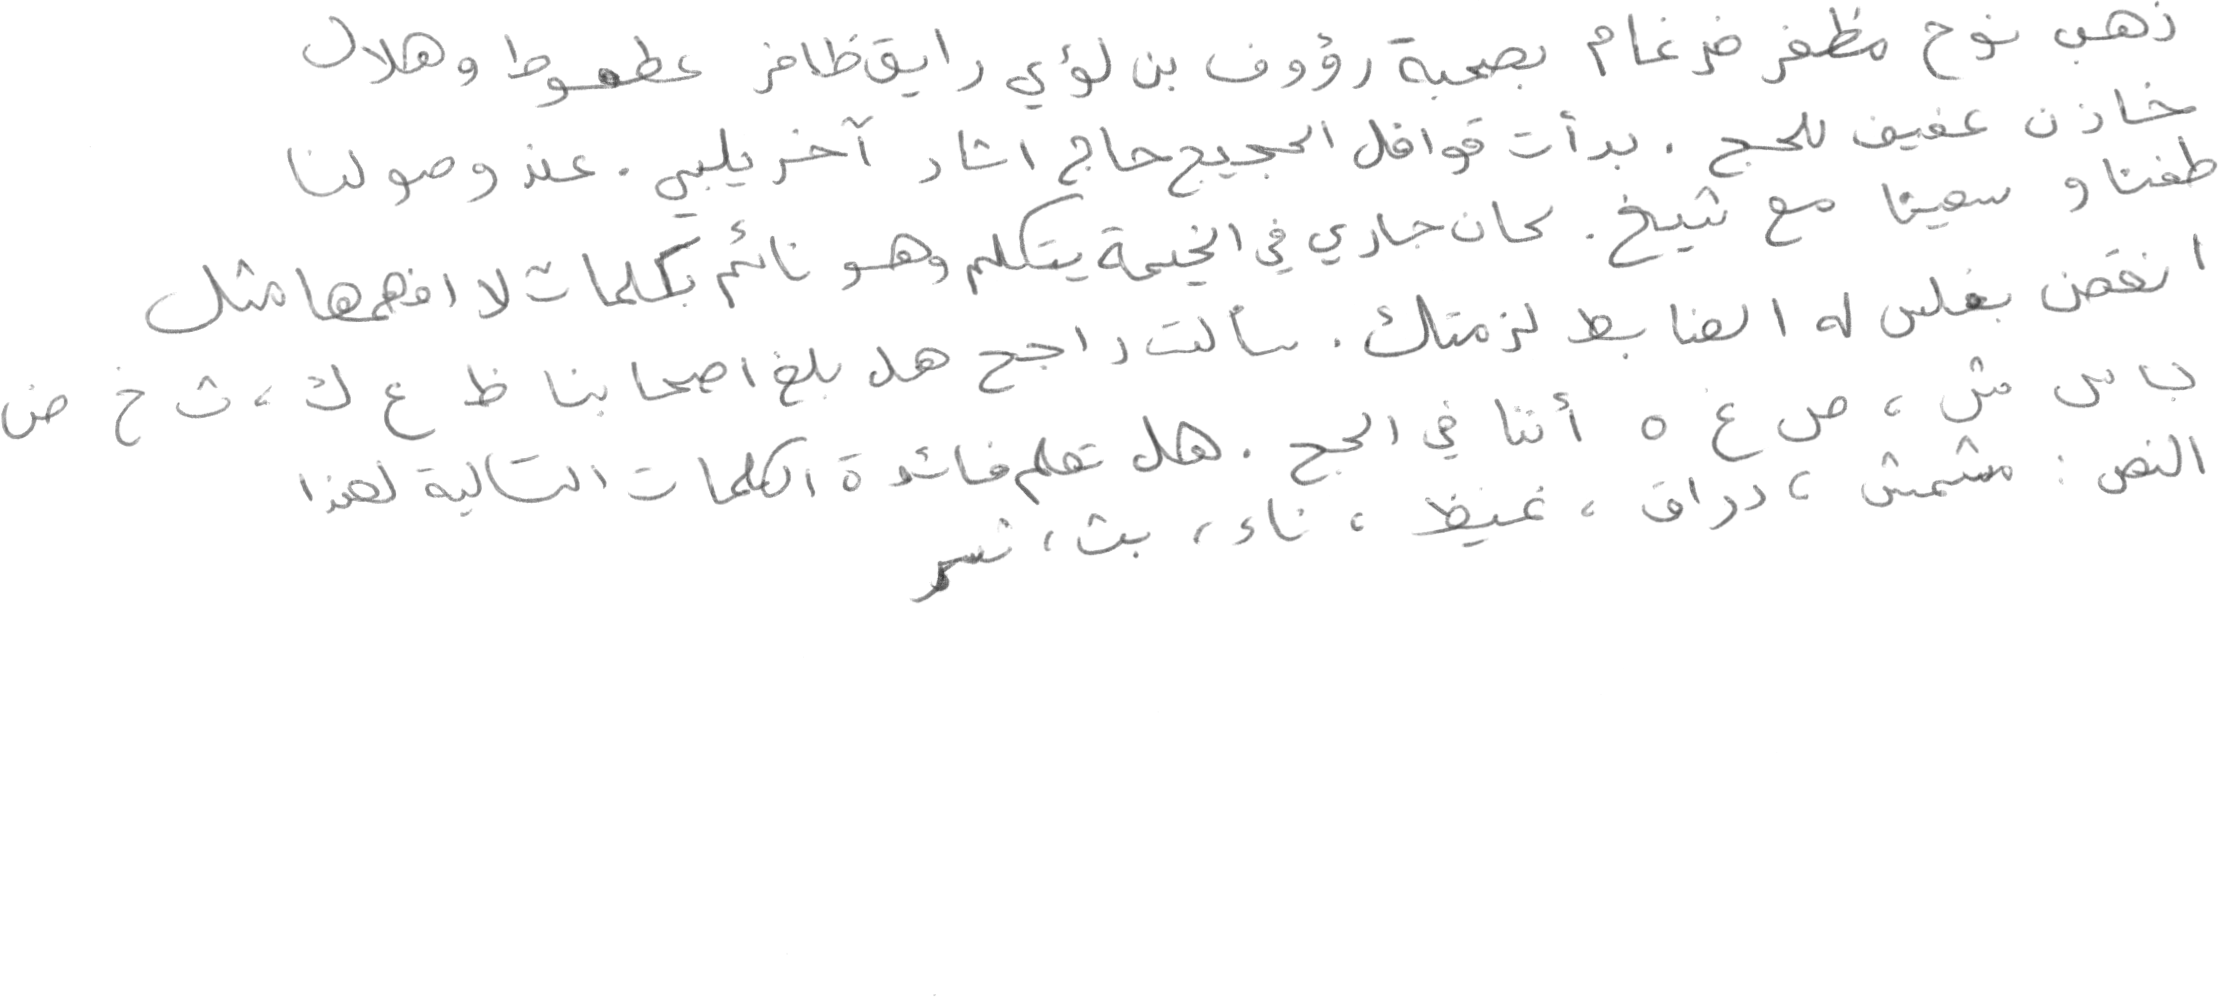 ذهب نوح مظفر ضرغام بصحبة رؤوف بن لؤي رايق ظافر عطعوط وهلال
خازن عفيف للحج . بدأت قوافل الحجيج حاج اشار آخر يلبي . عند وصولنا
طفنا و سعينا مع شيخ . كان جاري في الخيمة يتكلم وهو نائم بكلمات لا افهمها مثل
انقض بغلس له الضابط لزمتك . سألت راجح هل بلغ اصحابنا ظ ع ك ، ث خ ض
ب س ش ، ص غ ه أننا في الحج . هل تعلم فائدة الكلمات التالية لهذا
النص : مشمش ، دراق ، غيظ ، ناء ، بث ، نسر